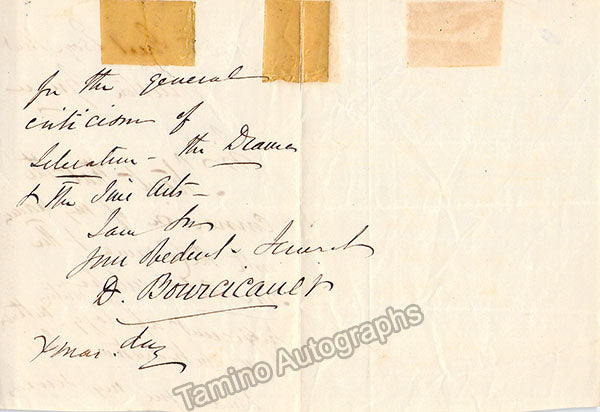 for the general
criticism of
Literature - the Drama
& the Fine Arts -
I am Sir
your obedient Servant
D. Bourcicault
Xmas. day
Tamino Autographs